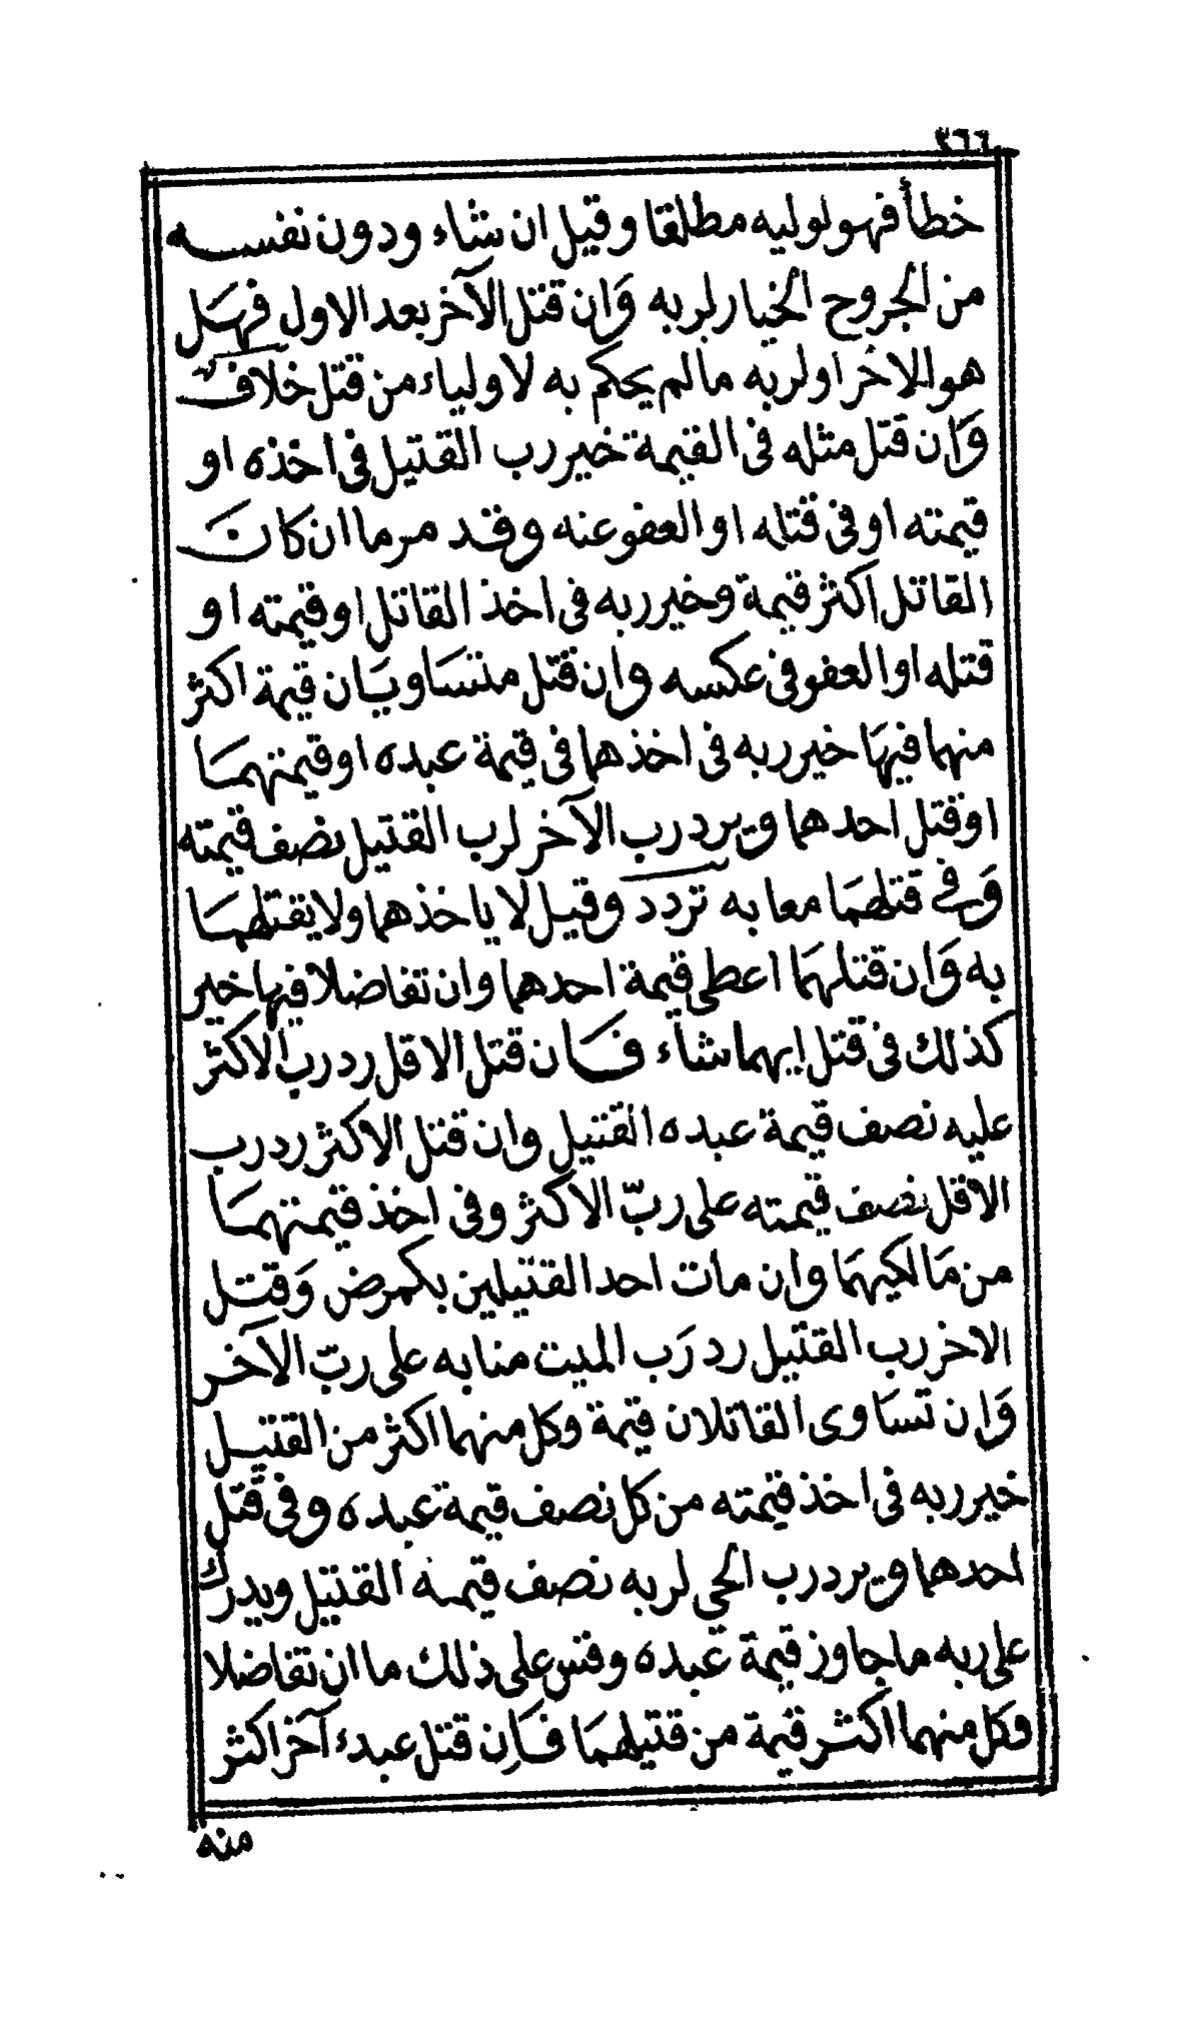 ٣٦٦
خطأ فهو لوليه مطلقا وقيل ان شاء ودون نفسه
من الجروح الخيار لربه وَان قتل الآخر بعد الاول فهَل
هو للاخر او لربه ما لم يحكم به لاولياء من قتل خلاف
وَان قتل مثله فى القيمة خير رب القتيل فى اخذه او
قيمته او فى قتله او العفو عنه وقد مر ما ان كان
القاتل اكثر قيمة وخير ربه فى اخذ القاتل او قيمته او
قتله او العفو فى عكسه وان قتل متسَاويَان قيمة اكثر
منهما فيهَا خير ربه فى اخذهما فى قيمة عبده او قيمتهمَا
او قتل احدهما ويرد رب الآخر لرب القتيل نصف قيمته
وَفى قتلهمَا معا به تردد وقيل لا ياخذهما ولا يقتلهمَا
به وَان قتلهمَا اعطى قيمة احدهما وان تفاضلا فيها خير
كذلك فى قتل ايهما شاء فَان قتل الاقل رد رب الاكثر
عليه نصف قيمة عبده القتيل وان قتل الاكثر رد رب
الاقل نصف قيمته على ربّ الاكثر وفى اخذ قيمتهمَا
من مَالكيهمَا وان مات احد القتيلين بكمرض وَقتل
الاخر رب القتيل رد رَب الميت منابه على ربّ الآخر
وَان تسَاوى القاتلان قيمة وكل منهما اكثر من القتيل
خير ربه فى اخذ قيمته من كل نصف قيمة عبده وفى قتل
احدهما ويرد رب الحي لربه نصف قيمة القتيل ويدرك
على ربه ما جاوز قيمة عبده وقس على ذلك ما ان تفاضلا
وكل منهما اكثر قيمة من قتيلهمَا فَاِن قتل عبدء آخر اكثر
منه